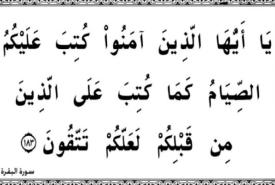 يَا أَيُّهَا الَّذِينَ آمَنُواْ كُتِبَ عَلَيْكُمُ
الصِّيَامُ كَمَا كُتِبَ عَلَى الَّذِينَ
مِن قَبْلِكُمْ لَعَلَّكُمْ تَتَّقُونَ ﴿١٨٣﴾
سورة البقرة